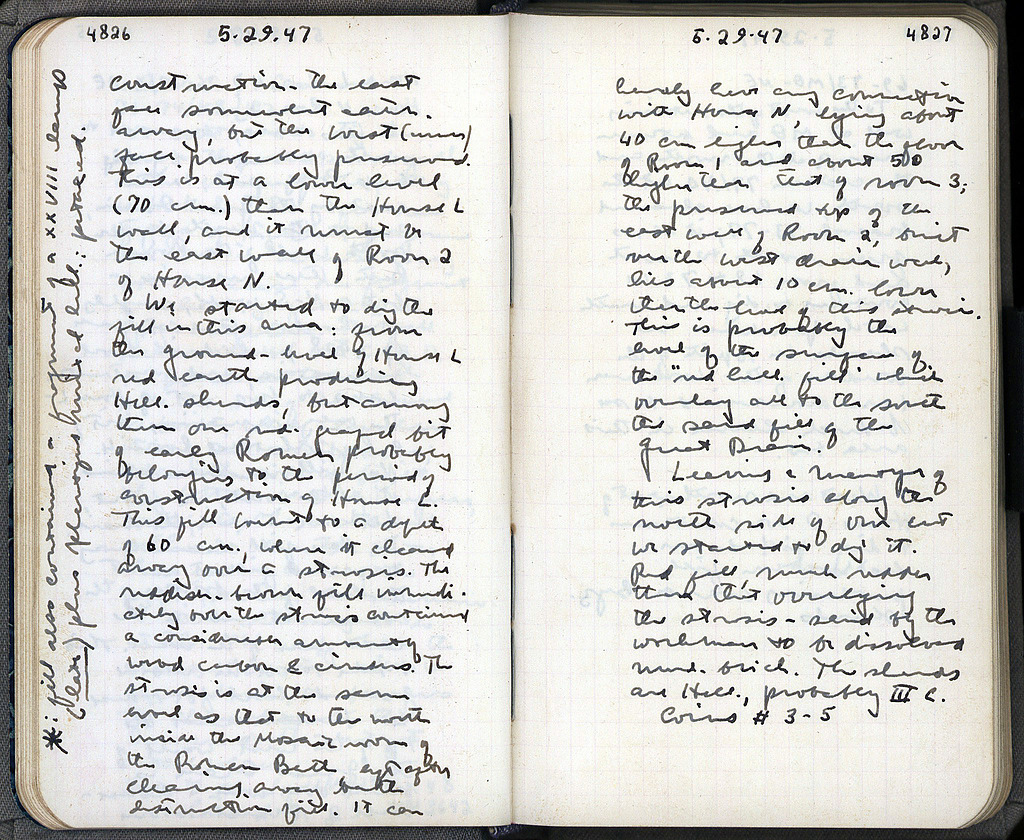 4826 5.29.47
construction - the east
face somewhat eaten
away, but the west (inner)
face probably preserved.
This is at a lower level
(70 cm.) than the House L
wall, and it must be
the east wall of Room 2
of House N.
We started to dig the
fill in this area: from
the ground-level of House L
red earth producing
Hell. sherds, but among
them one red glazed bit
of early Roman probably
belonging to the period of
construction of House L.
This fill went to a depth
of 60 cm., where it cleared
away over a strosis. The
reddish-brown fill immedi-
ately over the strosis contained
a considerable amount of
wood carbon & cinders. The
strosis is at the same
level as that to the north
inside the Mosaic room of
the Roman Bath after
clearing away
destruction fill. It can
*: fill also containing a fragment of a XXVIII lamp
(late) plus plenteous mixed Hell.:
5.29.47 4827
barely have any connection
with House N, lying about
40 cm higher than the floor
of Room 1 and about 50
higher than that of room 3;
the preserved top of the
east wall of Room 2, built
over the west drain wall,
lies about 10 cm. lower
than the level of this strosis.
This is probably the
level of the surface of
the "red Hell. fill" which
overlay all to the south
the sand fill of the
Great Drain.
Leaving a martyra of
this strosis along the
north side of our cut
we started to dig it.
Red fill, much redder
than that overlying
the strosis - said by the
workmen to be dissolved
mud-brick. The sherds
are Hell., probably III c.
Coins # 3-5